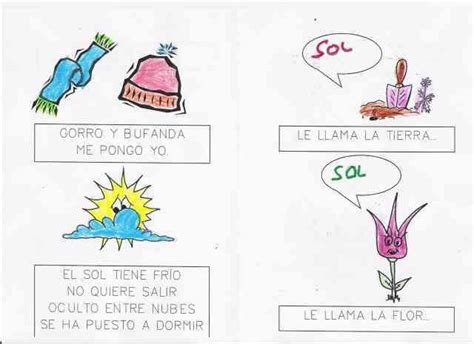 GORRO Y BUFANDA
ME PONGO YO.
EL SOL TIENE FRÍO
NO QUIERE SALIR
OCULTO ENTRE NUBES
SE HA PUESTO A DORMIR
SOL
LE LLAMA LA TIERRA..
SOL
LE LLAMA LA FLOR...